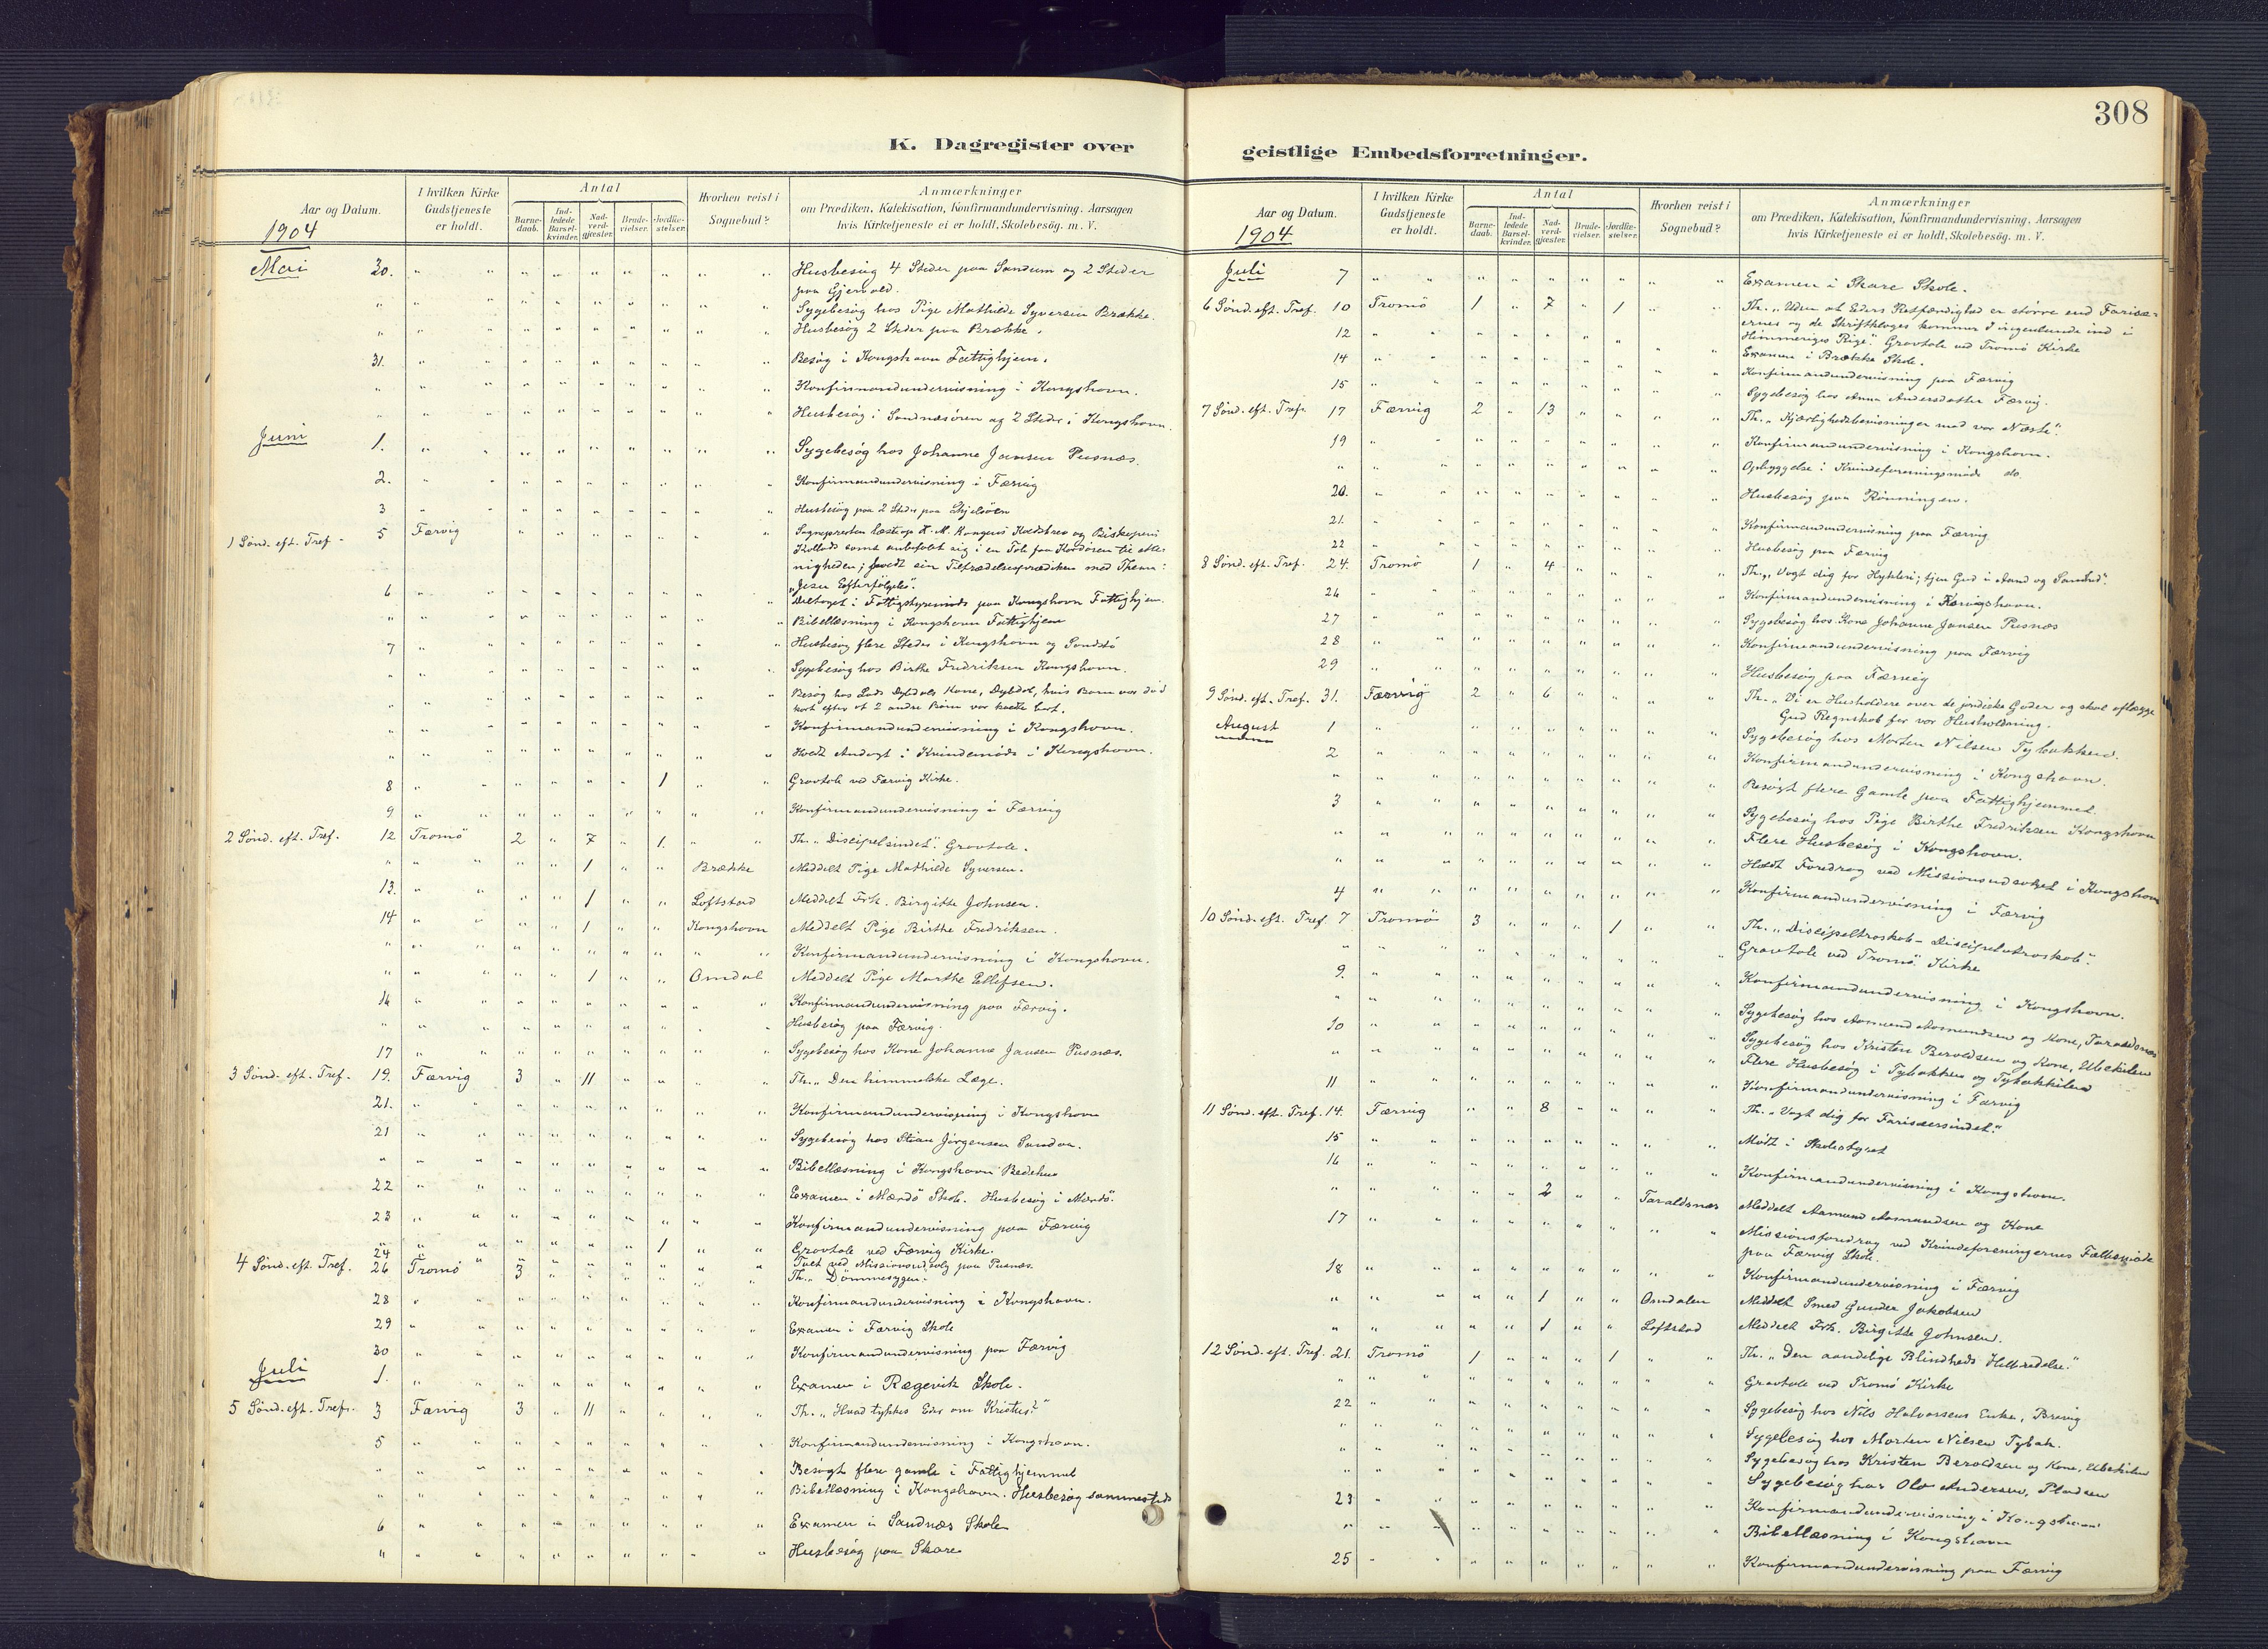 308
K. Dagregister over
Aar og Datum.
I hvilken Kirke Gudstjeneste er holdt.
Antal
Barnedaab.
Indledede Barselkvinder.
Nadverdgjester.
Brudevielser.
Jordfæstelser.
Hvorhen reist i Sognebud?
Anmærkninger
om Prædiken, Katekisation, Konfirmandundervisning, Aarsagen
hvis Kirketjeneste ei er holdt, Skolebesög. m. V.
1904
Mai 30. Husbesög 4 Steder paa Sandum og 2 Steder
paa Gjervold.
" Sygebesög hos Pige Mathilde Syversen Brække.
" Husbesög 2 Steder paa Brække.
31. Besög i Kongshavn Fattighjem.
" Konfirmandundervisning i Kongshavn.
" Husbesög i Sandnæsören og 2 Steder i Kongshavn.
Juni 1. Sygebesög hos Johanne Jansen Pusnæs.
2. Konfirmandundervisning i Færvig
3 Husbesög paa 2 Steder paa Skjelsöen
1 Sönd. eft. Tref. 5 Færvig Sognepresten læste op H. M. Kongens Kaldsbrev og Biskopens
Kollats samt anbefalet sig i en Tale fra Kordören til Me-
nigheden; holdt sin Tiltrædelsesprædiken med Thema:
"Jesu Efterfölgelse".
6 Deltaget i Fattigstyremöde paa Kongshavn Fattighjem.
" Bibellæsning i Kongshavn Fattighjem
7 Husbesög flere Steder i Kongshavn og Sandstö
" Sygebesög hos Birthe Fredriksen Kongshavn.
" Besög hos Lods Dybdals Kone, Dybdal, hvis Barn var död
kort efter at 2 andre Börn var kaldte bort.
" Konfirmandundervisning i Kongshavn.
" Holdt Andagt i Kvindemöde i Kongshavn.
8 1 Gravtale ved Færvig Kirke.
9 Konfirmandundervisning i Færvig
2 Sönd. eft. Tref. 12 Tromö 2 " 7 " 1. Th. "Discipelsindet". Gravtale.
" 1 Brække Meddelt Pige Mathilde Syversen.
13. 1 Loftstad Meddelt Frk. Birgitte Johnsen.
14 1 Kongshavn Meddelt Pige Birthe Fredriksen.
" Konfirmandundervisning i Kongshavn.
" 1 Omdal Meddelt Pige Marthe Ellefsen.
16 Konfirmandundervisning paa Færvig.
" Husbesög paa Færvig.
17 Sygebesög hos Kone Johanne Jansen Pusnæs.
3 Sönd. eft. Tref. 19. Færvig 3 " 11 Th. "Den himmelske Læge.
21. Konfirmandundervisning i Kongshavn
21 Sygebesög hos Stian Jörgensen Sandum.
" Bibellæsning i Kongshavn Bedehus
22 Examen i Mærdö Skole. Husbesög i Mærdö.
23 Konfirmandundervisning paa Færvig
24 1 Gravtale ved Færvig Kirke.
Talt ved Missionsudsalg paa Pusnæs.
4 Sönd. eft. Tref. 26 Tromö 3 Th. "Dömmesygen".
28 Konfirmandundervisning i Kongshavn.
29 Examen i Færvig Skole
30 Konfirmandundervisning paa Færvig
Juli 1. Examen i Rægevik Skole.
5 Sönd. eft. Tref. 3 Færvig 3 " 11 Th. "Hvad tykkes Eder om Kristus?"
5 Konfirmandundervisning i Kongshavn.
" Besögt flere gamle i Fattighjemmet
" Bibellæsning i Kongshavn. Husbesög sammesteds
6 Examen i Sandnæs Skole
" Husbesög paa Skare
geistlige Embedsforretninger.
Aar og Datum.
I hvilken Kirke Gudstjeneste er holdt.
Antal
Barnedaab.
Indledede Barselkvinder.
Nadverdgjester.
Brudevielser.
Jordfæstelser.
Hvorhen reist i Sognebud?
Anmærkninger
om Prædiken, Katekisation, Konfirmandundervisning, Aarsagen
hvis Kirketjeneste ei er holdt, Skolebesög. m. V.
1904
Juli 7 Examen i Skare Skole.
6 Sönd. eft. Tref. 10 Tromö 1 " 7 " 1 Th. "Uden at Eders Retfærdighed er större end Farisæ-
ernes og de Skriftkloges kommer I ingenlunde ind i
Himmeriges Rige". Gravtale ved Tromö Kirke
12 Examen i Brække Skole.
14 Konfirmandundervisning paa Færvig
15 Sygebesög hos Anna Andersdatter Færvig.
7 Sönd. eft. Tref. 17 Færvig 2 " 13 Th. "Kjærlighedsbevisningen mod vor Næste".
19 Konfirmandundervisning i Kongshavn.
" Opbyggelse i Kvindeforeningsmöde do.
20. Husbesög paa Rönningen.
21. Konfirmandundervisning paa Færvig
22 Husbesög paa Færvig
8 Sönd. eft. Tref. 24. Tromö 1 " 4 Th. "Vogt dig for Hykleri; tjen Gud i Aand og Sandhed".
26 Konfirmandundervisning i Kongshavn.
27 Sygebesög hos Kone Johanne Jansen Pusnæs
28 Konfirmandundervisning paa Færvig
29 Husbesög paa Færvig
9 Sönd. eft. Tref. 31. Færvig 2 " 6 Th. "Vi er Husholdere over de jordiske Goder og skal aflægge
Gud Regnskab for vor Husholdning.
August 1 Sygebesög hos Morten Nilsen Tybakken.
2 Konfirmandundervisning i Kongshavn.
" Besögt flere Gamle paa Fattighjemmet
3 Sygebesög hos Pige Birthe Fredriksen Kongshavn
" Flere Husbesög i Kongshavn.
" Holdt Foredrag ved Missionsudsalget i Kongshavn
4 Konfirmandundervisning i Færvig
10 Sönd. eft. Tref. 7 Tromö 3 " " " 1 Th. "Discipeltroskab - Discipelutroskab".
" Gravtale ved Tromö Kirke
9. Konfirmandundervisning i Kongshavn.
" Sygebesög hos Aamund Aamundsen og Kone, Taraldsnæs
10 Sygebesög hos Kristen Beroldsen og Kone, Ubekilen
" Flere Husbesög i Tybakken og Tybakkilen
11 Konfirmandundervisning i Færvig
11 Sönd. eft. Tref. 14. Færvig " " 8 Th. "Vogt dig for Farisæersindet."
15 Mödt i Skolestyret
16 Konfirmandundervisning i Kongshavn.
" 2 Taraldsnæs Meddelt Aamund Aamundsen og Kone
17 Missionsforedrag ved Kvindeforeningernes Fællesmöde
paa Færvig Skole.
18 Konfirmandundervisning i Færvig
" 1 Omdalen Meddelt Smed Gunder Jakobsen
" 1 Loftstad Meddelt Frk. Birgitte Johnsen.
12 Sönd. eft. Tref. 21. Tromö 1 " " " 1 Th. "Den aandelige Blindheds Helbredelse."
" Gravtale ved Tromö Kirke
22 Sygebesög hos Nils Halvorsens Enke, Brævig
" Sygebesög hos Morten Nilsen Tybak.
" Sygebesög hos Kristen Beroldsen og Kone, Ubekilen
" Sygebesög hos Olav Andersen, Pladsen
23 Konfirmandundervisning i Kongshavn
" Bibellæsning i Kongshavn
25 Konfirmandundervisning paa Færvig